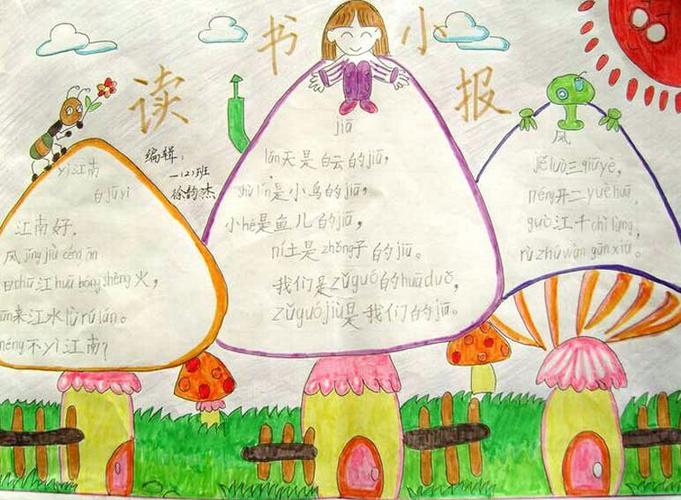 读书小报
编辑：
一(2)班
徐钧杰
yì江南
白jūyì
江南好.
风jǐng jiù céng ān
日chū江huā hóng shèng火，
来江水lǜ rú lán。
néng不yì江南?
jiā
lán天是白云的jiā，
shù lín是小鸟的jiā，
小hé是鱼儿的jiā，
ní土是zhǒng子的jiā。
我们是zǔ guó的huā duǒ，
zǔ guó jiù是我们的jiā。
风
jiě luò三qiū yè，
néng开二yuè huā，
guò江千chǐ làng，
rù zhú wàn gān xié。